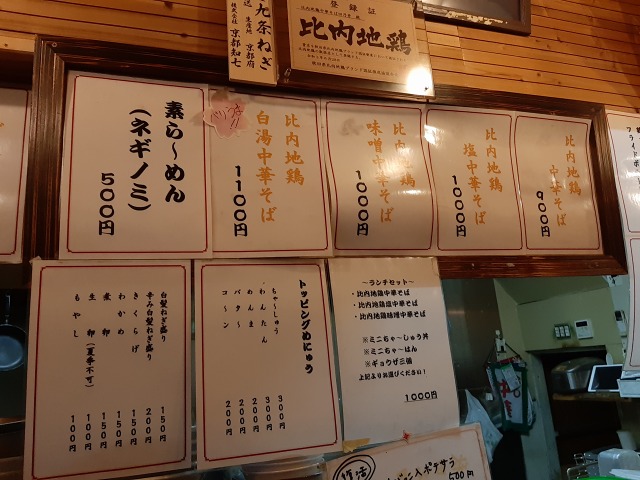 登録証
比内地鶏
九条ねぎ
生産地 京都府
株式会社 京都知七
比内地鶏
中華そば
900円
比内地鶏
塩中華そば
1000円
比内地鶏
味噌中華そば
1000円
比内地鶏
白湯中華そば
1100円
素ら〜めん
(ネギノミ)
500円
〜ランチセット〜
・比内地鶏中華そば
・比内地鶏塩中華そば
・比内地鶏味噌中華そば
※ミニちゃ〜しゅう丼
※ミニちゃ〜はん
※ギョウザ三個
上記よりお選びください!
1000円
トッピングめにゅう
ちゃ〜しゅう 300円
わんたん 300円
めんま 200円
バター 200円
コ〜ン 200円
白髪ねぎ盛り 150円
辛み白髪ねぎ盛り 200円
きくらげ 150円
わかめ 150円
煮卵 150円
生卵(夏季不可) 100円
もやし 100円
復活
入ポテサラ
500円